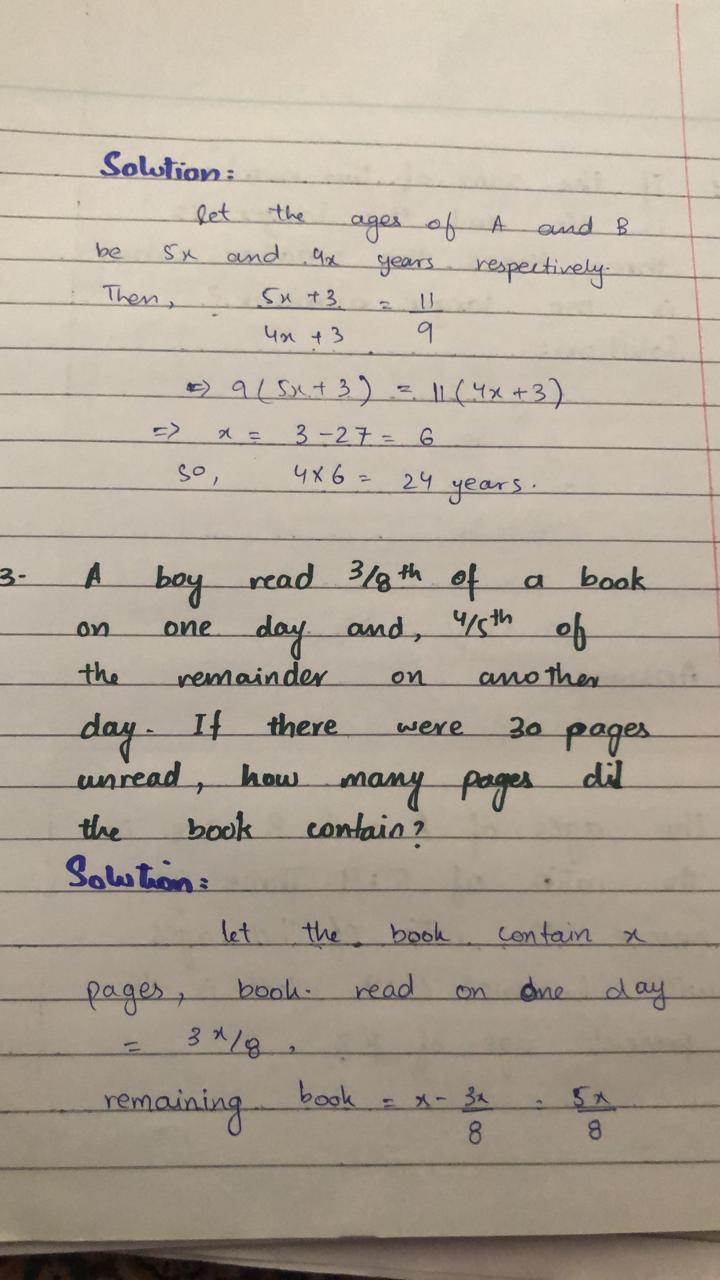 Solution:
let the ages of A and B
be 5x and 4x years respectively.
Then, 5x + 3 / 4x + 3 = 11 / 9
=> 9(5x + 3) = 11(4x + 3)
=> x = 33 - 27 = 6
so, 4x6 = 24 years.
3- A boy read 3/8th of a book
on one day and, 4/5th of
the remainder on another
day. If there were 30 pages
unread, how many pages did
the book contain?
Solution:
let the book contain x
pages, book read on one day
= 3x/8,
remaining book = x - 3x/8 = 5x/8